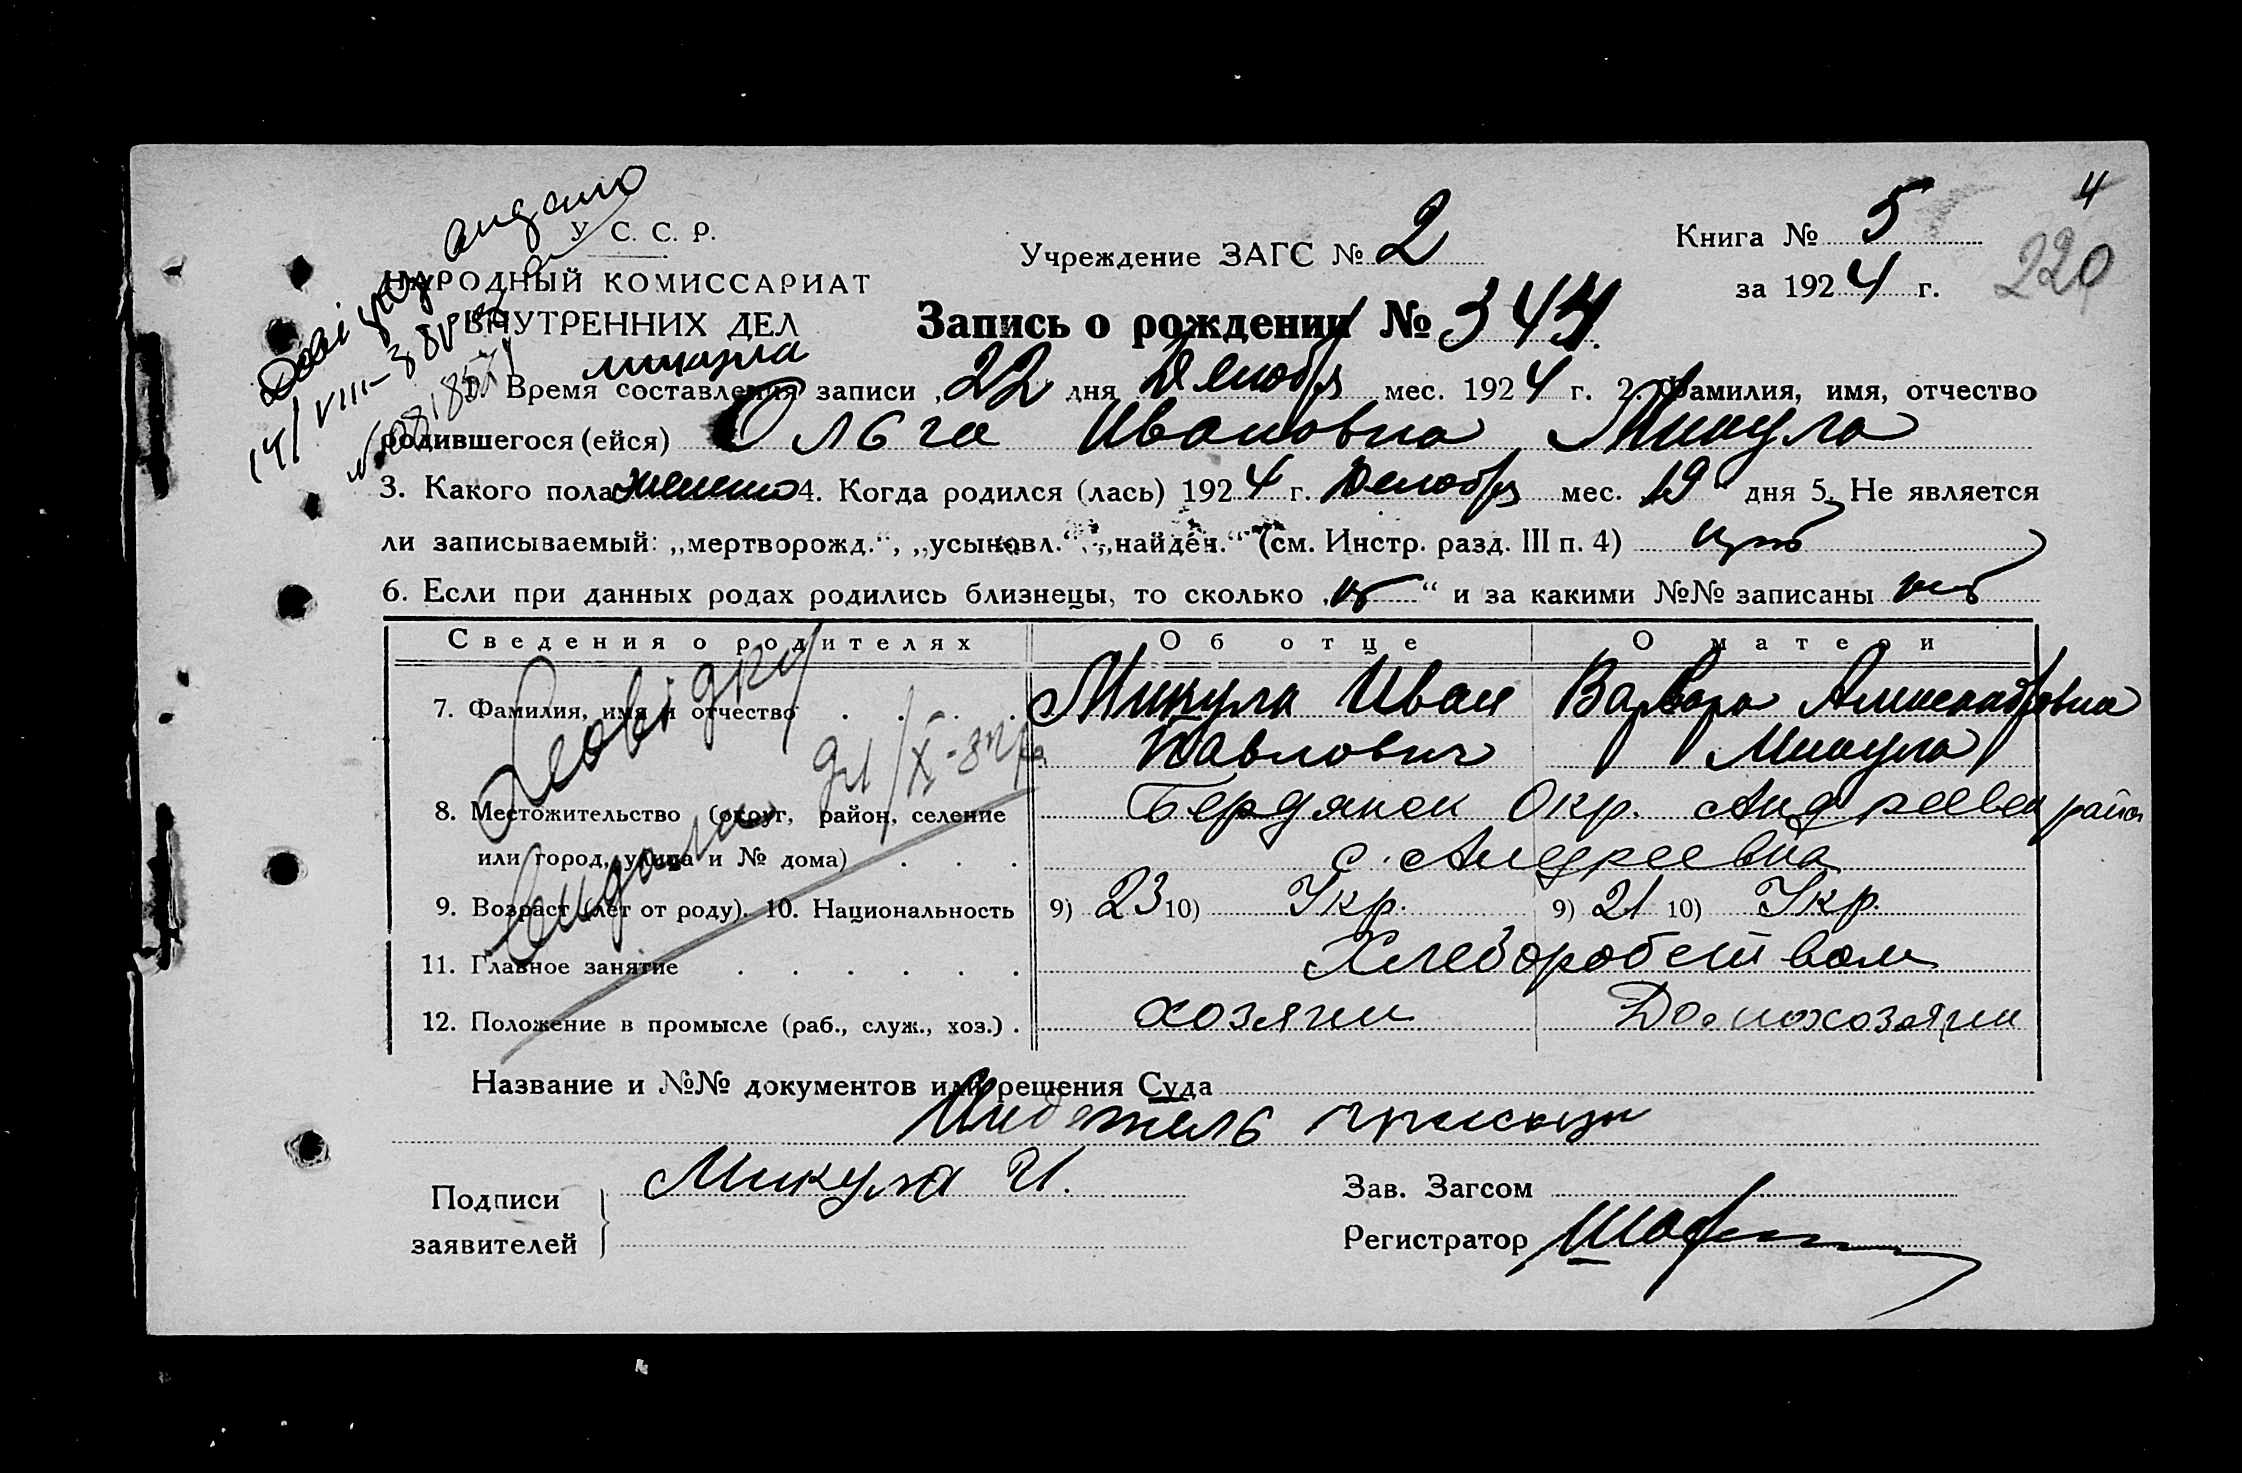 4
У. С. С. Р.
НАРОДНЫЙ КОМИССАРИАТ
ВНУТРЕННИХ ДЕЛ
Учреждение ЗАГС № 2
Книга № 5
220
за 1924 г.
Запись о рождении № 344
Довідку видано
микула
1. Время составления записи „22 дня Декабр мес. 1924 г. 2. Фамилия, имя, отчество
родившегося (ейся) Ольга Ивановна Микула
3. Какого пола женско 4. Когда родился (лась) 1924 г. Декабр мес. 19 дня 5. Не является
ли записываемый: „мертворожд.“, „усыновл.“, „найден.“ (см. Инстр. разд. III п. 4)
6. Если при данных родах родились близнецы, то сколько „ “ и за какими №№ записаны
Сведения о родителях Об отце О матери
7. Фамилия, имя и отчество Микула Иван Варвара Александровна
Павлович Микула
8. Местожительство (округ, район, селение Бердянск Окр. Андреевск район
или город, улица и № дома) с. Андреевка
9. Возраст (лет от роду). 10. Национальность 9) 23 10) Укр. 9) 21 10) Укр.
11. Главное занятие Хлеборобством
12. Положение в промысле (раб., служ., хоз.) хозяин Домохозяин
Довідку видано
Название и №№ документов или решения Суда
Подписи заявителей Микула И.
Зав. Загсом
Регистратор